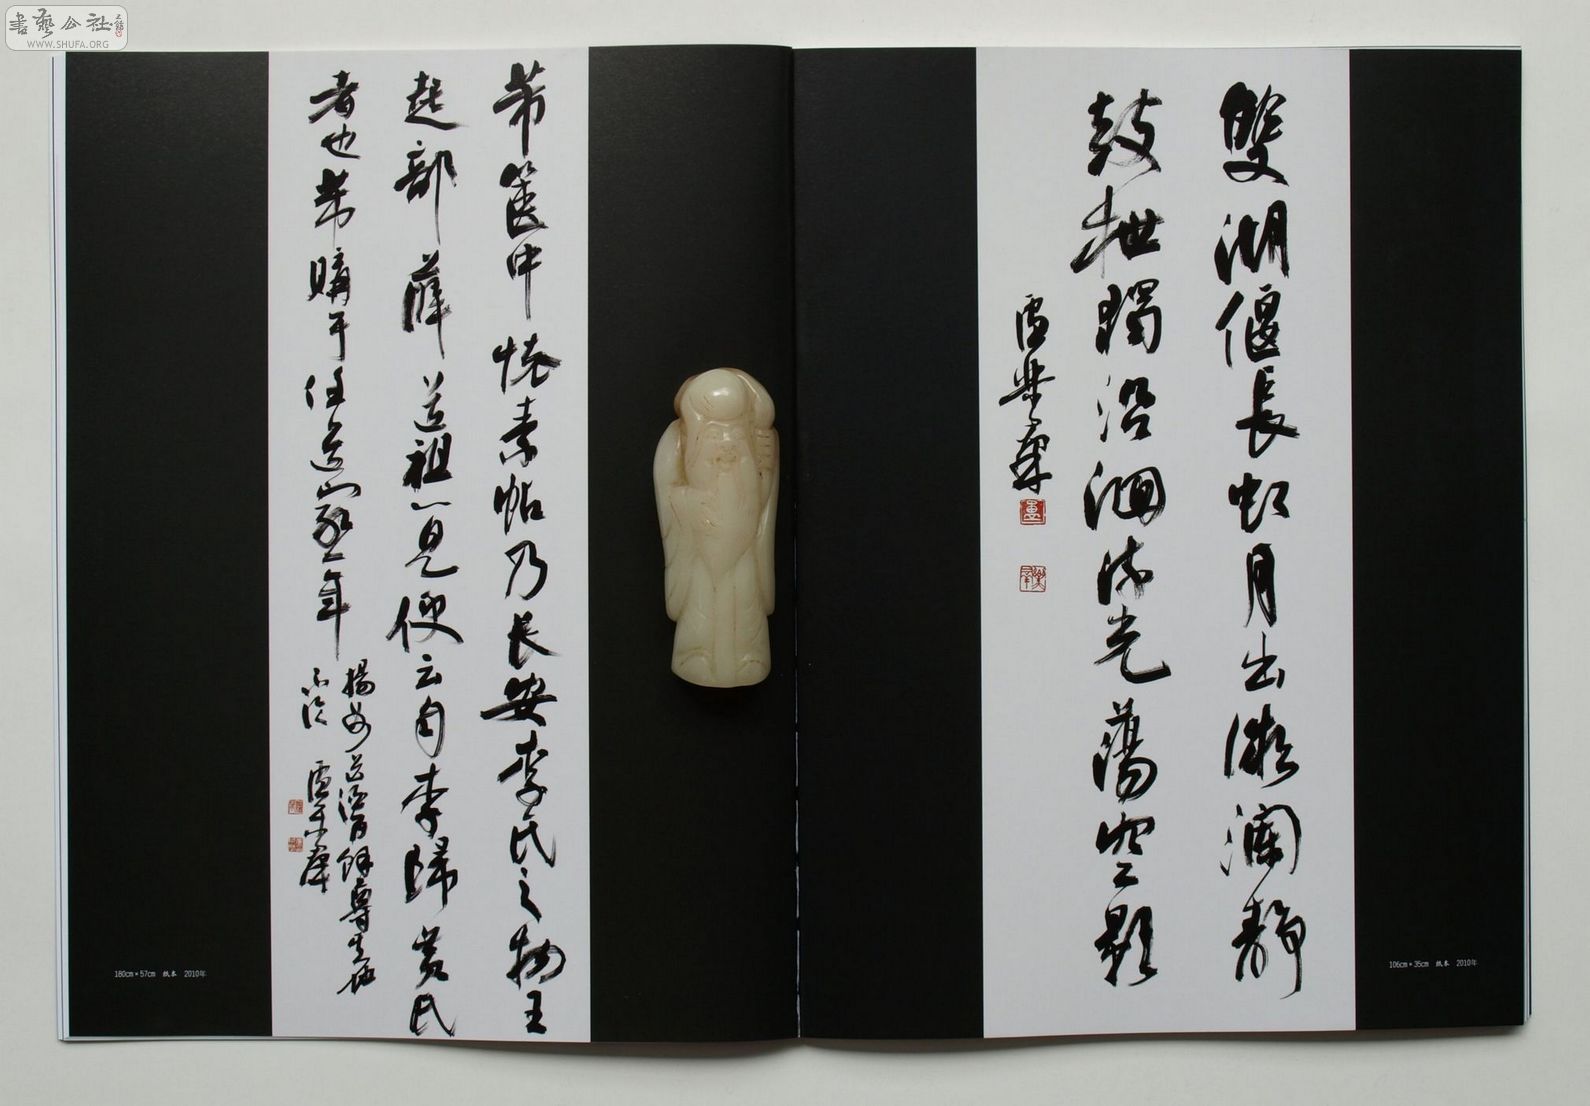 雙湖偃長虹月出微瀾靜
鼓枻獨沿洄流光蕩空影
盧樂群
106cm×35cm 紙本 2010年
芾篋中懷素帖乃長安李氏之物王
起部薛道祖一見便云自李歸黃氏
者也芾購于任道家一年
揚州
盧樂群
180cm×57cm 紙本 2010年
書藝公社
WWW.SHUFA.ORG